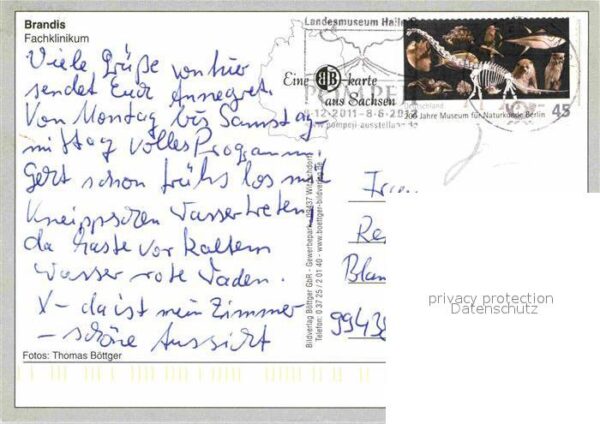 Brandis
Fachklinikum
Viele Grüße von hier
sendet Euch Annegret.
Von Montag bis Samstag-
mittag volles Programm
Geht schon frühs los mit
Kneippschen Wassertreten,
da haste vor kaltem
Wasser rote Waden.
X - da ist mein Zimmer -
- schöne Aussicht
Fotos: Thomas Böttger
Landesmuseum Halle
Eine BB-karte
aus Sachsen
POMPEJI
12-2011-8-6-2012
www.pompeji-ausstellung.de
Deutschland
200 Jahre Museum für Naturkunde Berlin
45
Bildverlag Böttger GbR - Gewerbepark - 09437 Witzschdorf
Telefon: 0 37 25 / 2 01 40 - www.boettger-bildverlag.de
privacy protection
Datenschutz